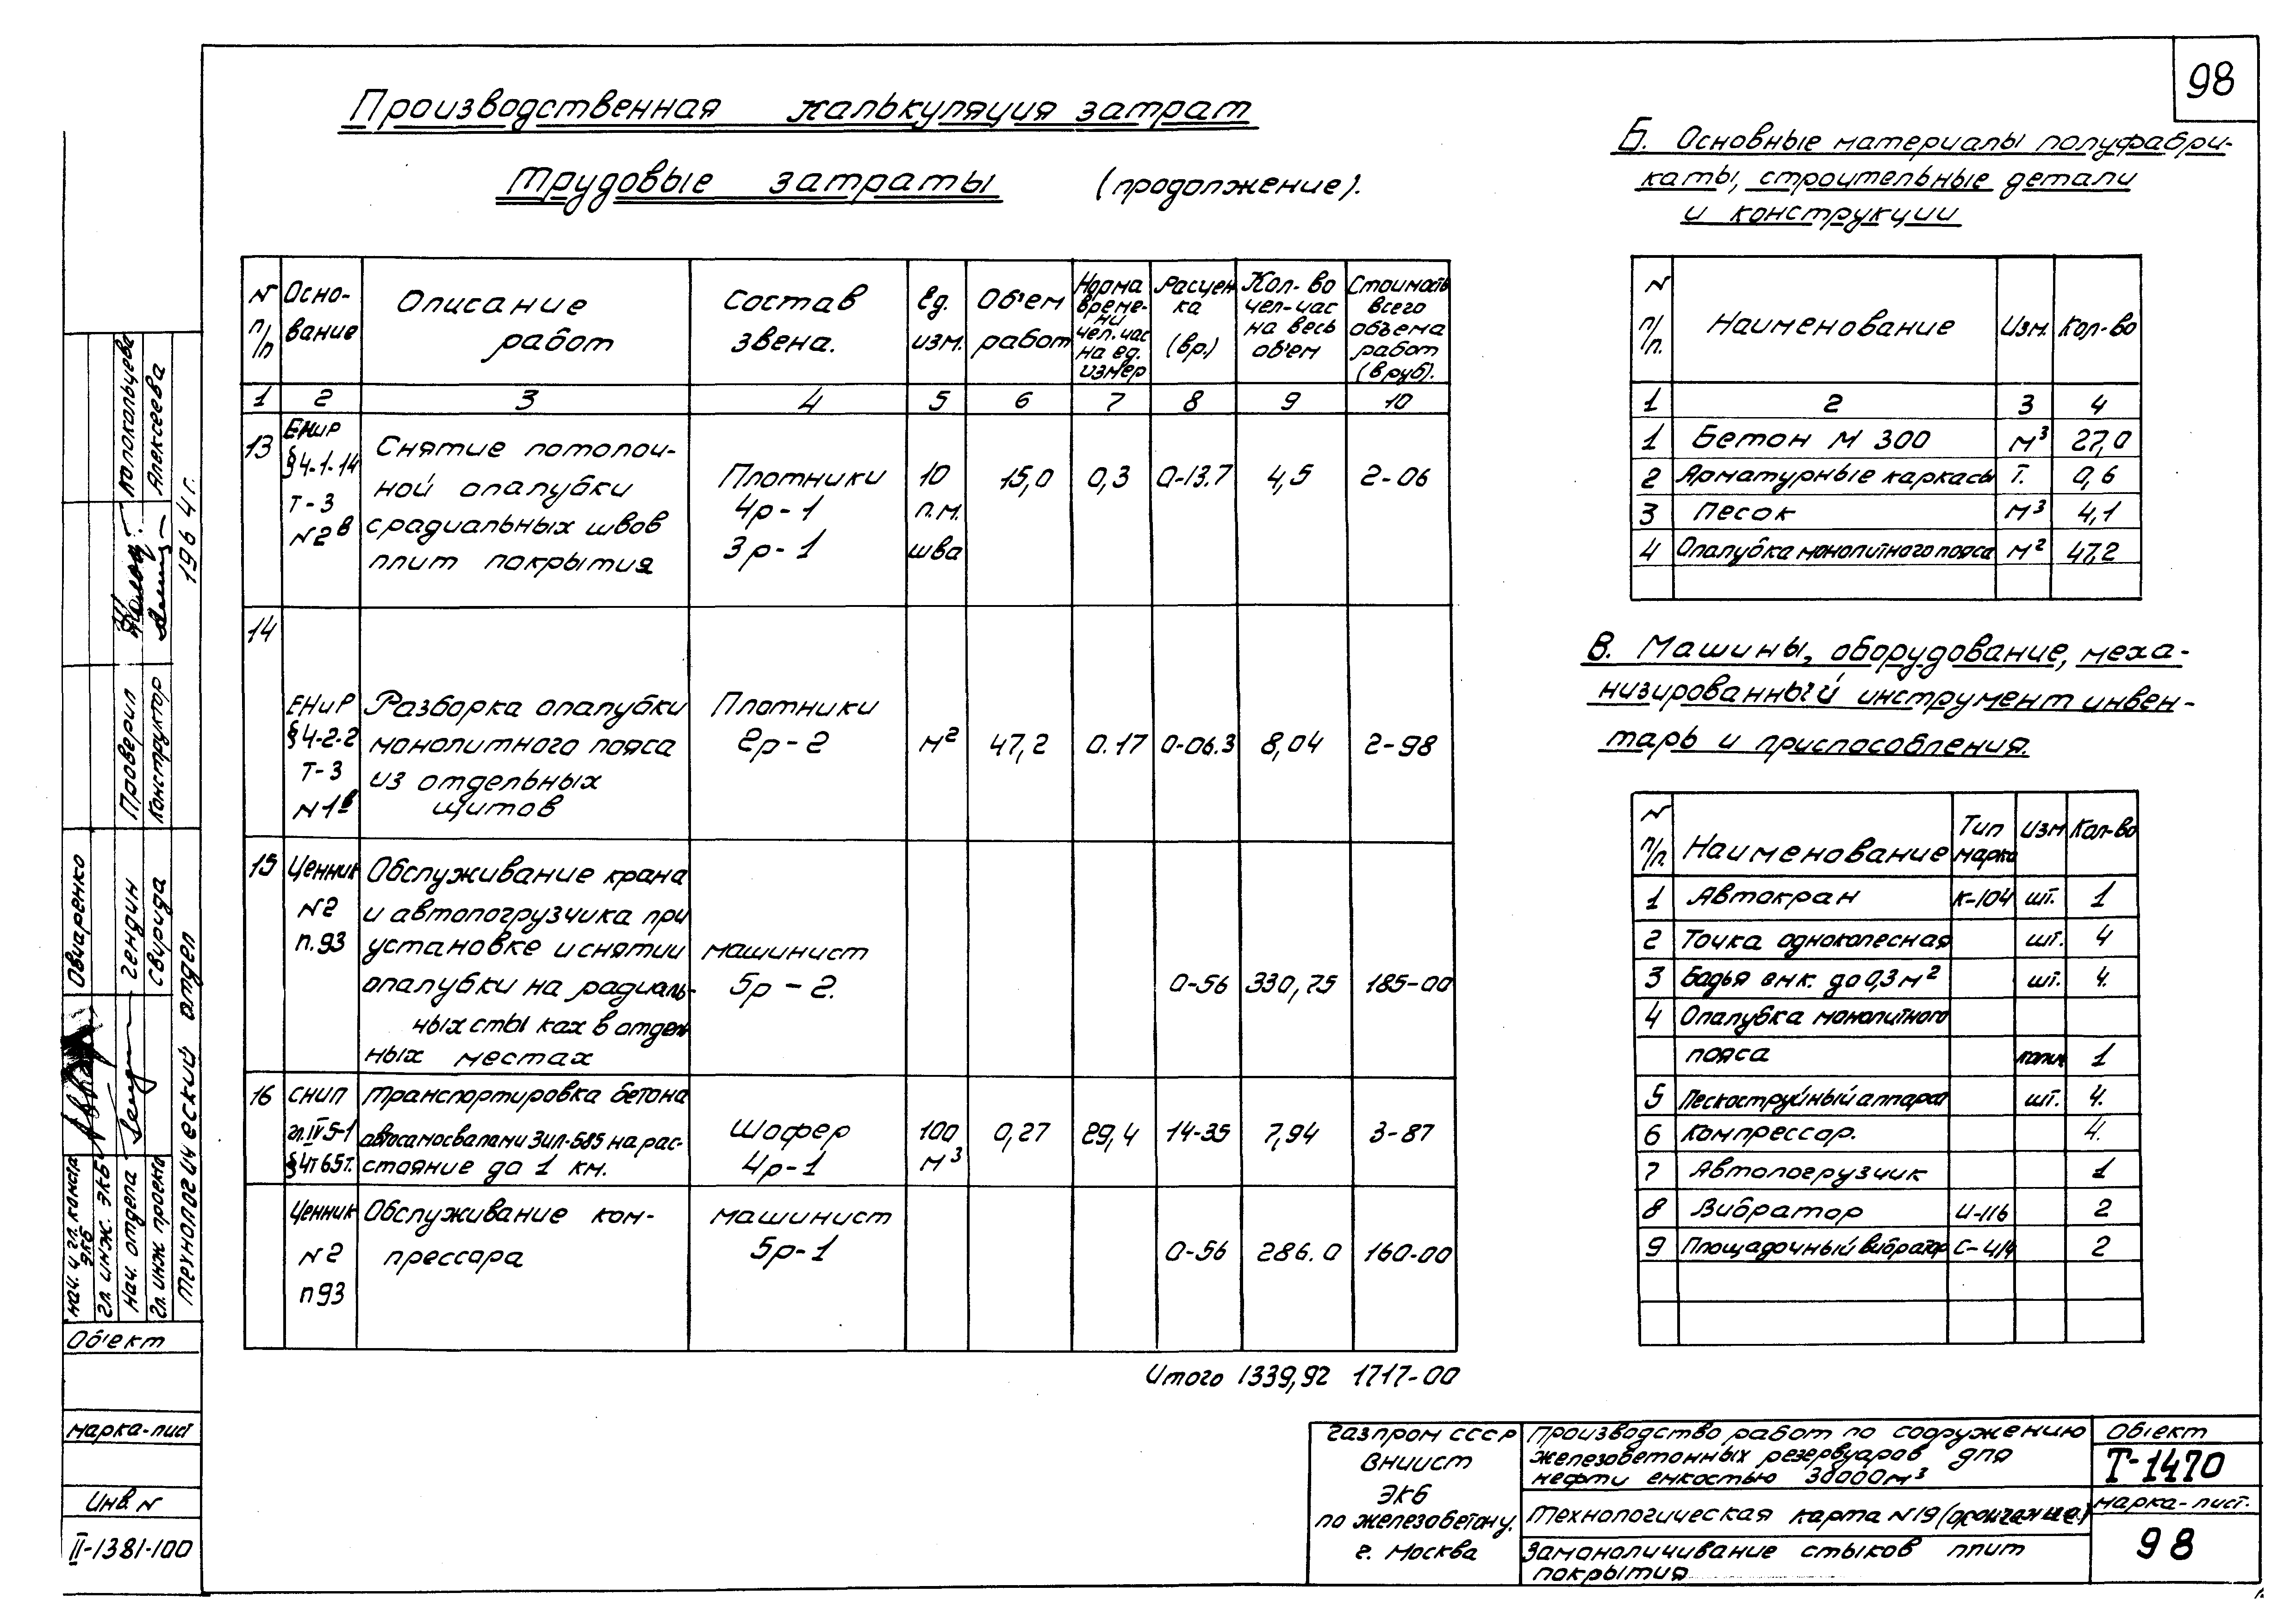 98
Производственная калькуляция затрат
Трудовые затраты (продолжение).
N п/п
Осно-вание
Описание работ
Состав звена.
ед. изм.
Объем работ
Норма време-ни чел.час на ед. измер
Расцен ка (вр.)
Кол-во чел-час на весь объем
Стоимость всего объема работ (в руб).
1 2 3 4 5 6 7 8 9 10
13 ЕНиР §4-1-14 Т-3 N2в
Снятие потолоч-
ной опалубки
с радиальных швов
плит покрытия
Плотники 4р-1 3р-1
10 п.м. шва
15,0 0,3 0-13.7 4,5 2-06
14 ЕНиР §4-2-2 Т-3 N1в
Разборка опалубки
монолитного пояса
из отдельных
щитов
Плотники 2р-2
м2 47,2 0.17 0-06.3 8,04 2-98
15 Ценник N2 п.93
Обслуживание крана
и автопогрузчика при
установке и снятии
опалубки на радиаль-
ных сты ках в отдел
ных местах
машинист 5р-2.
0-56 330,75 185-00
16 СНИП гл.IV5-1 §4т65т.
Транспортировка бетона
автосамосвалами ЗИЛ-585 на рас-
стояние до 1 км.
Шофер 4р-1
100 м3 0,27 29,4 14-35 7,94 3-87
Ценник N2 п93
Обслуживание ком-
прессора
машинист 5р-1
0-56 286.0 160-00
Итого 1339,92 1717-00
Б. Основные материалы полуфабри-
каты, строительные детали
и конструкции
N п/п. Наименование Изм. Кол-во
1 2 3 4
1 Бетон М 300 м3 27,0
2 Арматурные каркасы Т. 0,6
3 Песок м3 4,1
4 Опалубка монолитного пояса м2 47,2
В. Машины, оборудование, меха-
низированный инструмент инвен-
тарь и приспособления.
N п/п. Наименование Тип марка Изм Кол-во
1 Автокран К-104 шт. 1
2 Точка одноколесная шт. 4
3 Бадья емк. до 0,3 м2 шт. 4.
4 Опалубка монолитного
пояса 1
5 Пескоструйный аппарат шт. 4.
6 Компрессор. 4.
7 Автопогрузчик 1
8 Вибратор И-116 2
9 Площадочный вибратор С-414 2
Газпром СССР
ВНИИСТ
ЭКБ
по железобетону.
г. Москва
Производство работ по сооружению
железобетонных резервуаров для
нефти емкостью 30000м3
Технологическая карта N19 (окончание)
Замоноличивание стыков плит
покрытия
Объект
Т-1470
марка-лист.
98
Колокольцева
Алексеева
1964г.
Проверил
Конструктор
Овчаренко
Гендин
Свирида
Технологический отдел
нач. и гл. констр. ЭКБ
Гл. инж. ЭКБ
Нач. отдела
Гл. инж проекта
Объект
марка-лист
Инв. N
II-1381-100